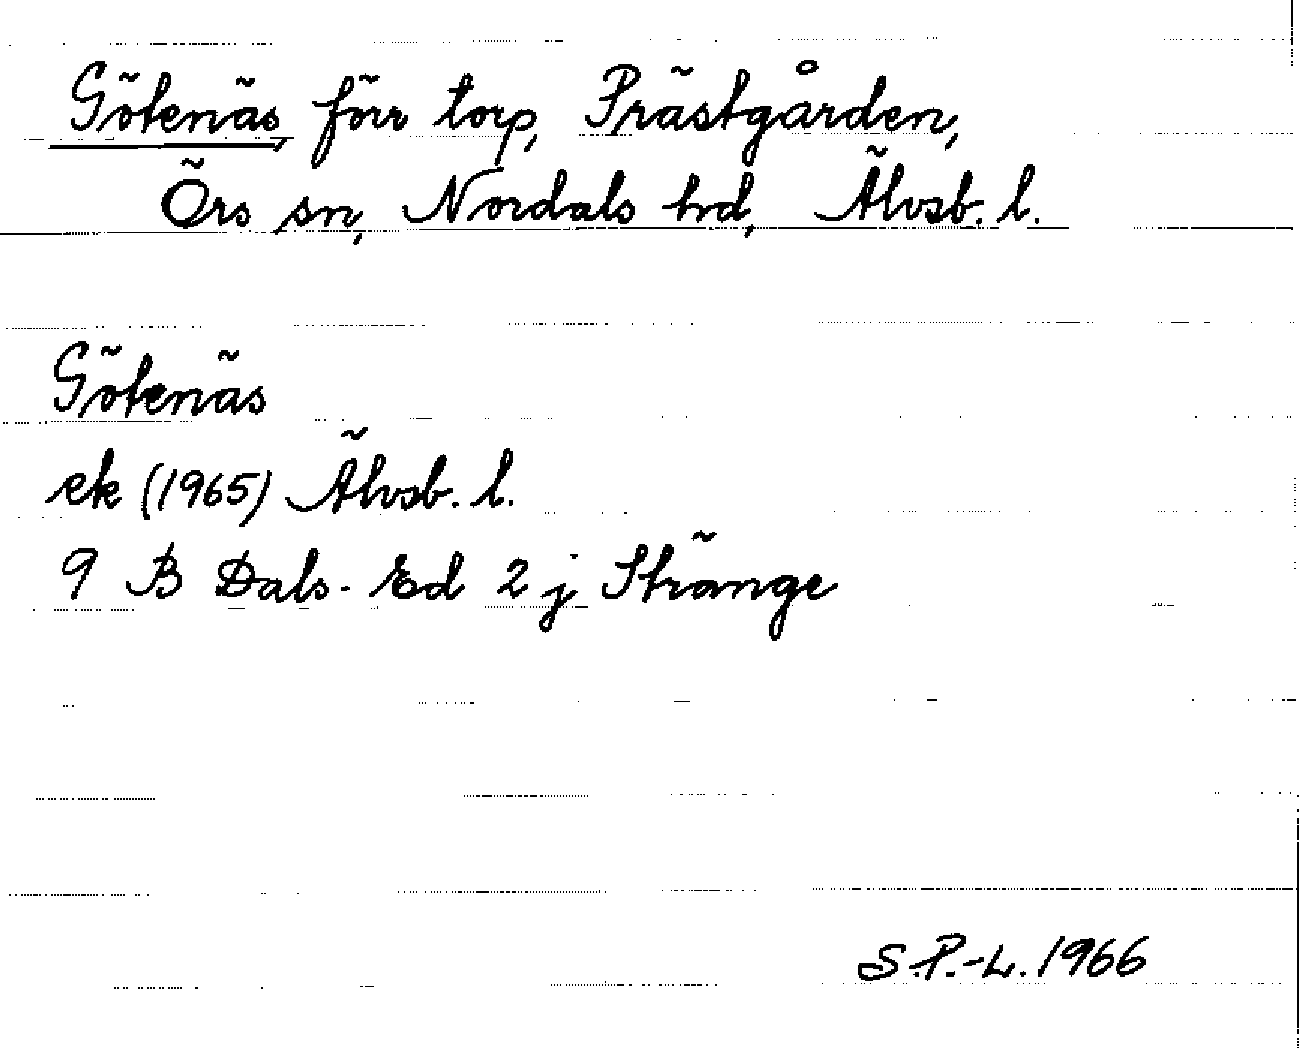 Götenäs, förr torp, Prästgården,
Örs sn, Nordals hd, Älvsb. l.
Götenäs
ek (1965) Älvsb. l.
9 B Dals-Ed 2 j Stränge
S.P.-L. 1966